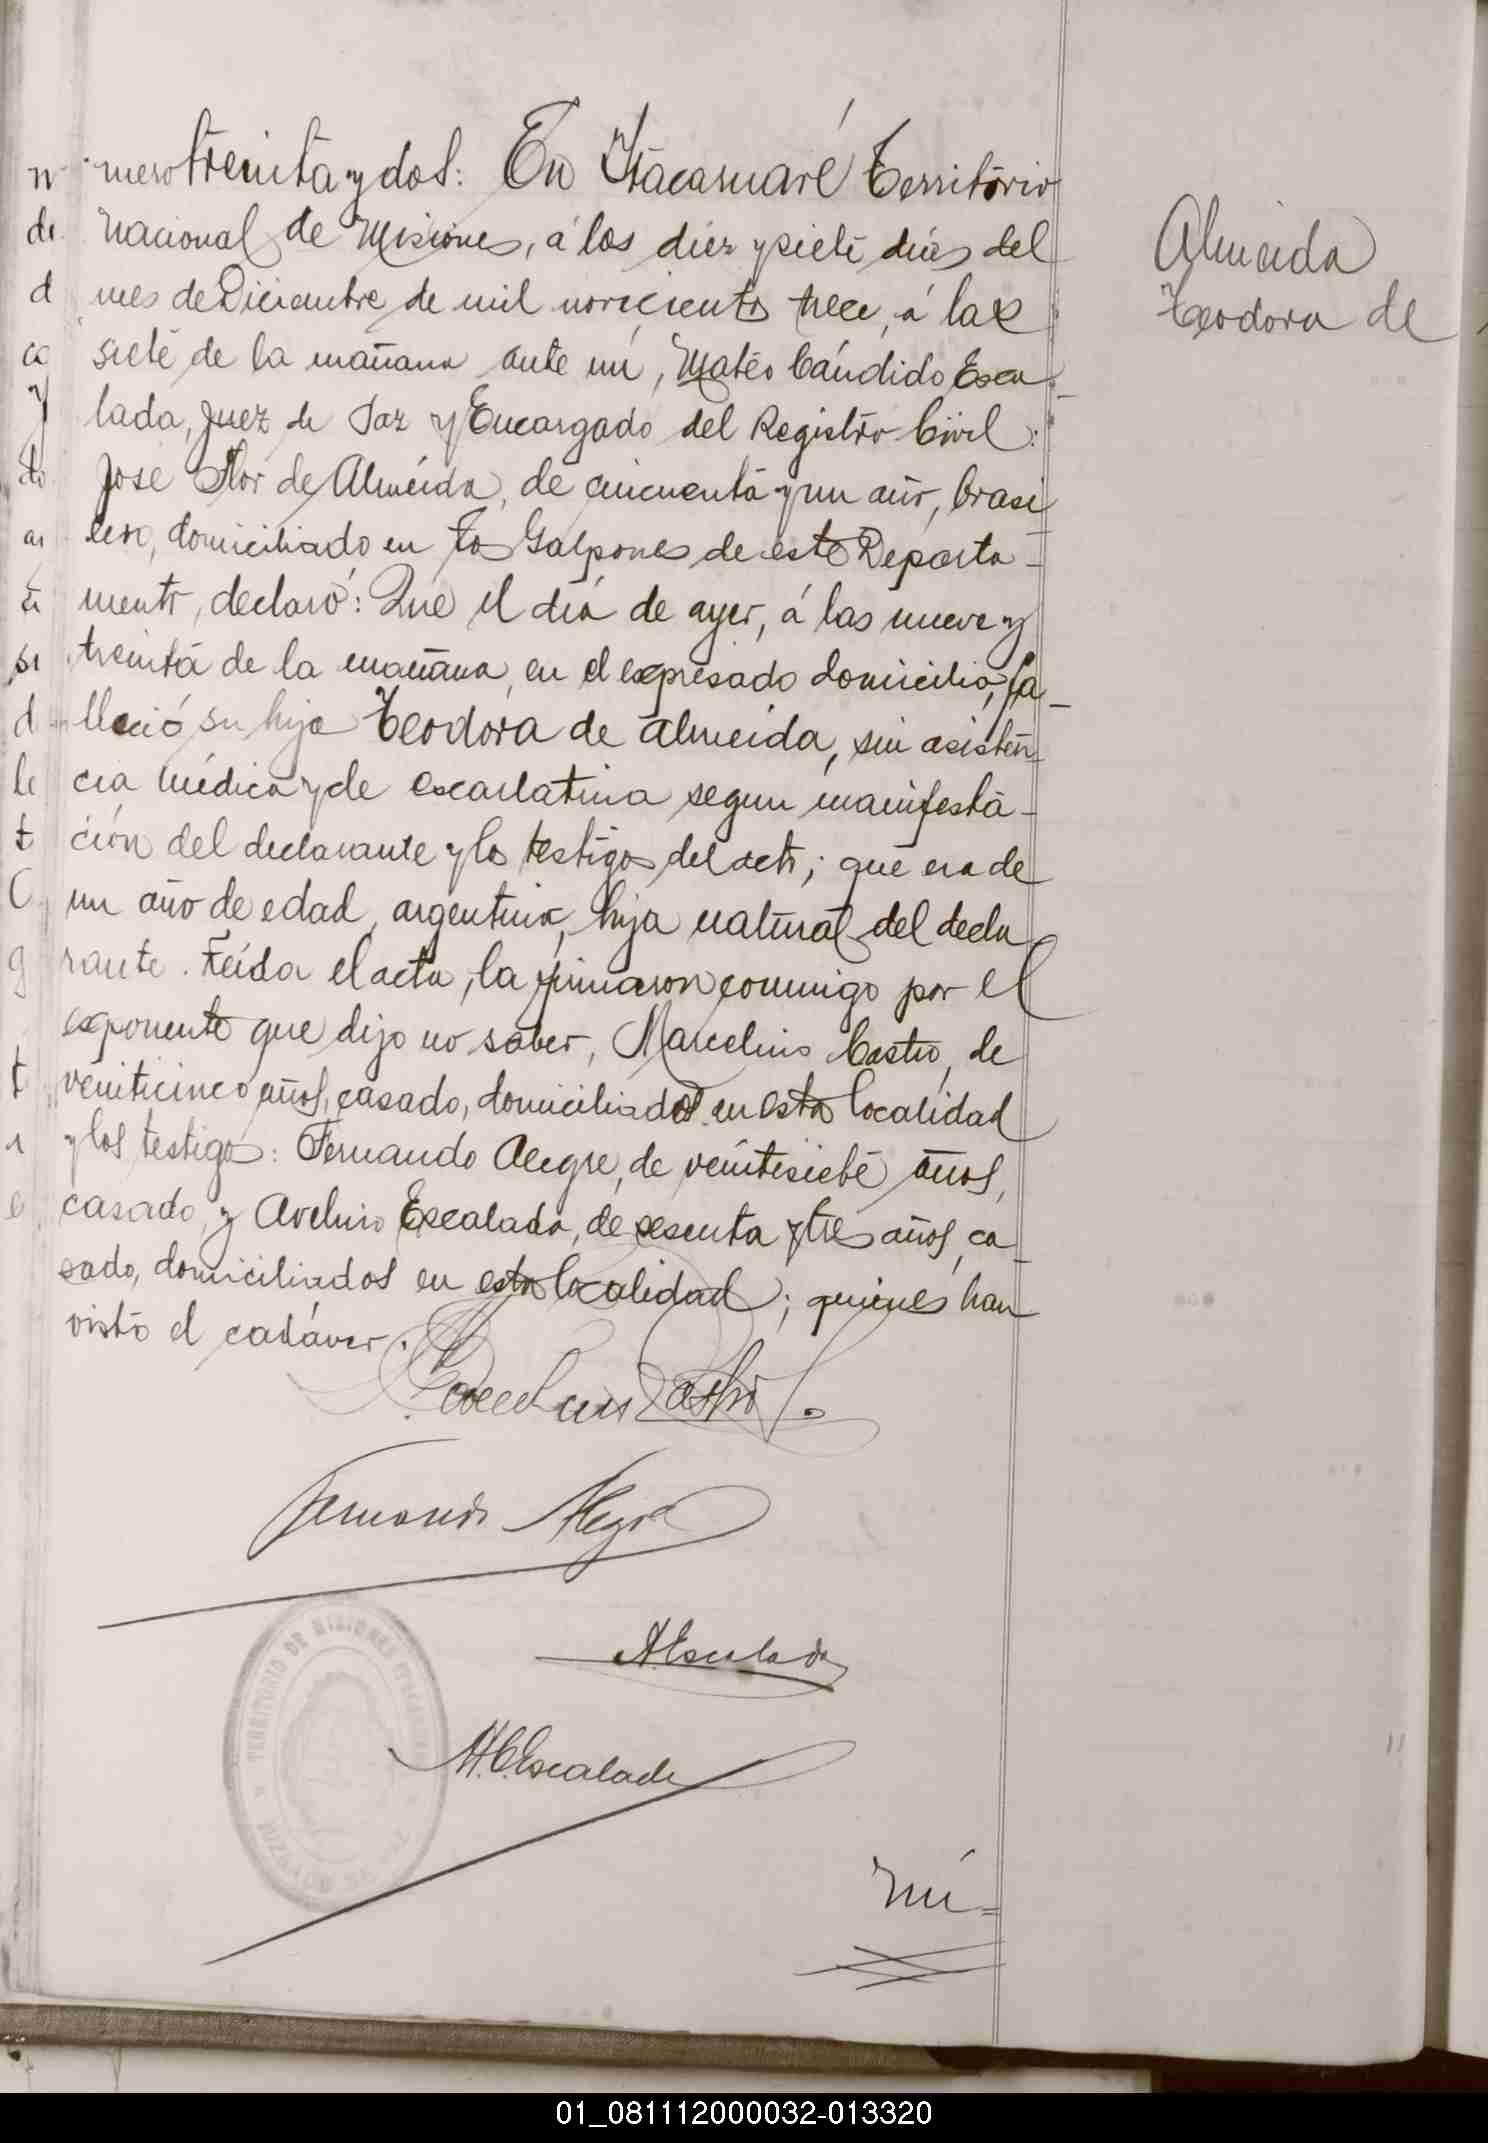 mero treinta y dos: En Itacaruaré Territorio
Nacional de Misiones, á los diez y siete dias del
mes de Diciembre de mil novecientos trece, á las
siete de la mañana ante mí, Matéo Cándido Esca
lada, Juez de Paz y Encargado del Registro Civil:
José Flor de Almeida, de cincuenta y un año, brasi
lero, domiciliado en Los Galpones de este Departa-
mento, declaró: Que el día de ayer, á las nueve y
treinta de la mañana, en el expresado domicilio, fa-
lleció su hija Teodora de Almeida, sin asisten
cia médica y de escarlatina segun manifesta-
ción del declarante y los testigos del acto; que era de
un año de edad, argentina, hija natural del decla
rante. Leída el acta, la firmaron conmigo por el
exponente que dijo no saber, Marcelino Castro, de
veinticinco años, casado, domiciliado en esta localidad
y los testigos: Fernando Alegre, de veintisiete años,
casado, y Avelino Escalada, de sesenta y tres años, ca-
sado, domiciliados en esta localidad; quienes han
visto el cadáver.
Almeida
Teodora de
Marcelino Castro
Fernando Alegre
A. Escalada
TERRITORIO DE MISIONES
M. C. Escalada
Nú=
01_081112000032-013320